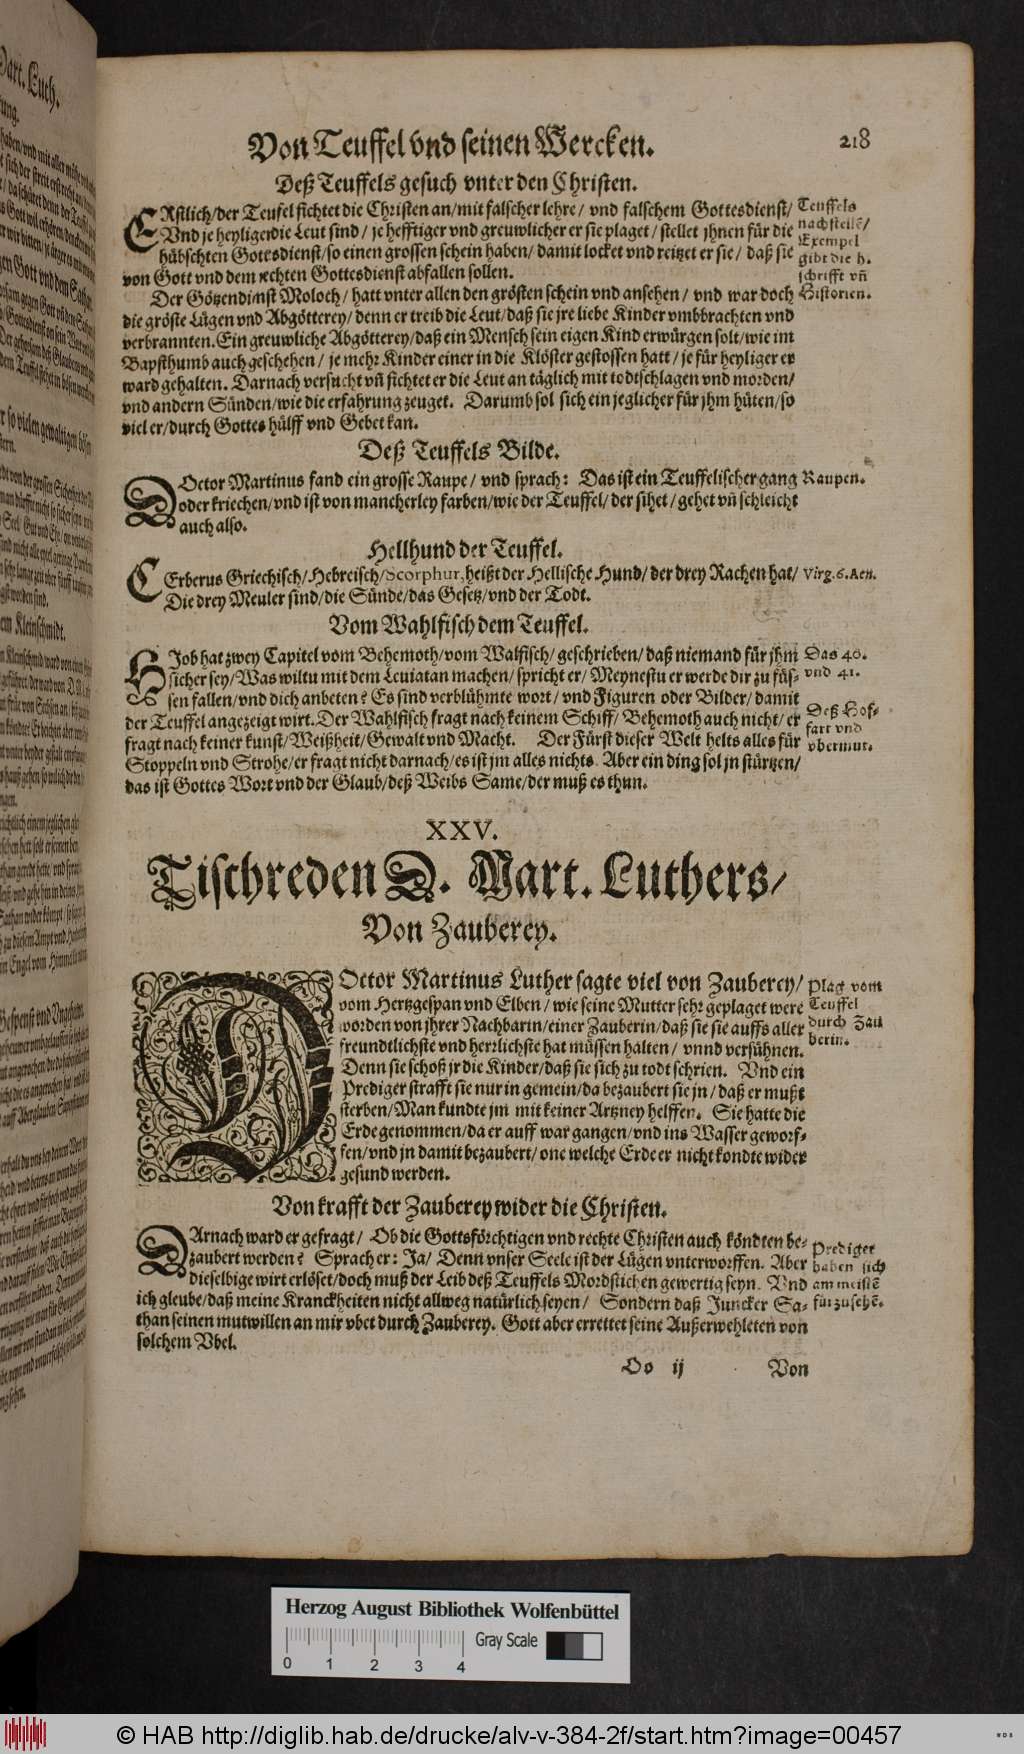 Von Teuffel vnd seinen Wercken.
218
Deß Teuffels gesuch vnter den Christen.
ERstlich/der Teufel fichtet die Christen an/mit falscher lehre/ vnd falschem Gottesdienst/
Vnd je heyliger die Leut sind/ je hefftiger vnd greuwlicher er sie plaget/ stellet jhnen für die
hübschten Gottesdienst/so einen grossen schein haben/ damit locket vnd reitzet er sie/ daß sie
von Gott vnd dem rechten Gottesdienst abfallen sollen.
Teuffels
nachstellẽ/
Exempel
gibt die h.
schrifft vñ
Historien.
Der Götzendinst Moloch/ hatt vnter allen den grösten schein vnd ansehen/ vnd war doch
die gröste Lügen vnd Abgötterey/ denn er treib die Leut/ daß sie jre liebe Kinder vmbbrachten vnd
verbrannten. Ein greuwliche Abgötterey/daß ein Mensch sein eigen Kind erwürgen solt/wie im
Bapsthumb auch geschehen/ je mehr Kinder einer in die Klöster gestossen hatt/ je für heyliger er
ward gehalten. Darnach versucht vñ fichtet er die Leut an täglich mit todtschlagen vnd morden/
vnd andern Sünden/wie die erfahrung zeuget. Darumb sol sich ein jeglicher für jhm hüten/so
viel er/durch Gottes hülff vnd Gebet kan.
Deß Teuffels Bilde.
DOctor Martinus fand ein grosse Raupe/ vnd sprach: Das ist ein Teuffelischer gang
oder kriechen/vnd ist von mancherley farben/wie der Teuffel/ der sihet/ gehet vñ schleicht
auch also.
Raupen.
Hellhund der Teuffel.
CErberus Griechisch/Hebreisch/Scorphur, heißt der Hellische Hund/ der drey Rachen hat/
Die drey Meuler sind/die Sünde/das Gesetz/vnd der Todt.
Virg. 6. Aen.
Vom Wahlfisch dem Teuffel.
HJob hat zwey Capitel vom Behemoth/vom Walfisch/ geschrieben/ daß niemand für jhm
sicher sey/Was wiltu mit dem Leuiatan machen/ spricht er/ Meynestu er werde dir zu füs-
sen fallen/vnd dich anbeten? Es sind verblühmte wort/ vnd Figuren oder Bilder/ damit
der Teuffel angezeigt wirt. Der Wahlfisch fragt nach keinem Schiff/ Behemoth auch nicht/ er
fragt nach keiner kunst/Weißheit/Gewalt vnd Macht. Der Fürst dieser Welt helts alles für
Stoppeln vnd Strohe/er fragt nicht darnach/es ist jm alles nichts. Aber ein ding sol jn stürtzen/
das ist Gottes Wort vnd der Glaub/deß Weibs Same/der muß es thun.
Das 40.
vnd 41.
Deß Hof-
fart vnd
vbermut.
XXV.
Tischreden D. Mart. Luthers/
Von Zauberey.
DOctor Martinus Luther sagte viel von Zauberey/
vom Hertzgespan vnd Elben/ wie seine Mutter sehr geplaget were
worden von jhrer Nachbarin/einer Zauberin/daß sie sie auffs aller
freundtlichste vnd herrlichste hat müssen halten/ vnnd versühnen.
Denn sie schoß jr die Kinder/daß sie sich zu todt schrien. Vnd ein
Prediger strafft sie nur in gemein/da bezaubert sie jn/ daß er mußt
sterben/Man kundte jm mit keiner Artzney helffen. Sie hatte die
Erde genommen/da er auff war gangen/vnd ins Wasser geworf-
fen/vnd jn damit bezaubert/ one welche Erde er nicht kondte wider
gesund werden.
Plag vom
Teuffel
durch Zau
berin.
Von krafft der Zauberey wider die Christen.
DArnach ward er gefragt/ Ob die Gottsförchtigen vnd rechte Christen auch köndten be-
zaubert werden? Sprach er: Ja/ Denn vnser Seele ist der Lügen vnterworffen. Aber
dieselbige wirt erlöset/doch muß der Leib deß Teuffels Mordstichen gewertig seyn. Vnd
ich gleube/daß meine Kranckheiten nicht allweg natürlich seyen/ Sondern daß Juncker Sa-
than seinen mutwillen an mir vbet durch Zauberey. Gott aber errettet seine Außerwehleten von
solchem Vbel.
Prediger
haben sich
am meistẽ
fürzusehẽ.
Oo ij
Von
Herzog August Bibliothek Wolfenbüttel
Gray Scale
0 1 2 3 4
© HAB http://diglib.hab.de/drucke/alv-v-384-2f/start.htm?image=00457